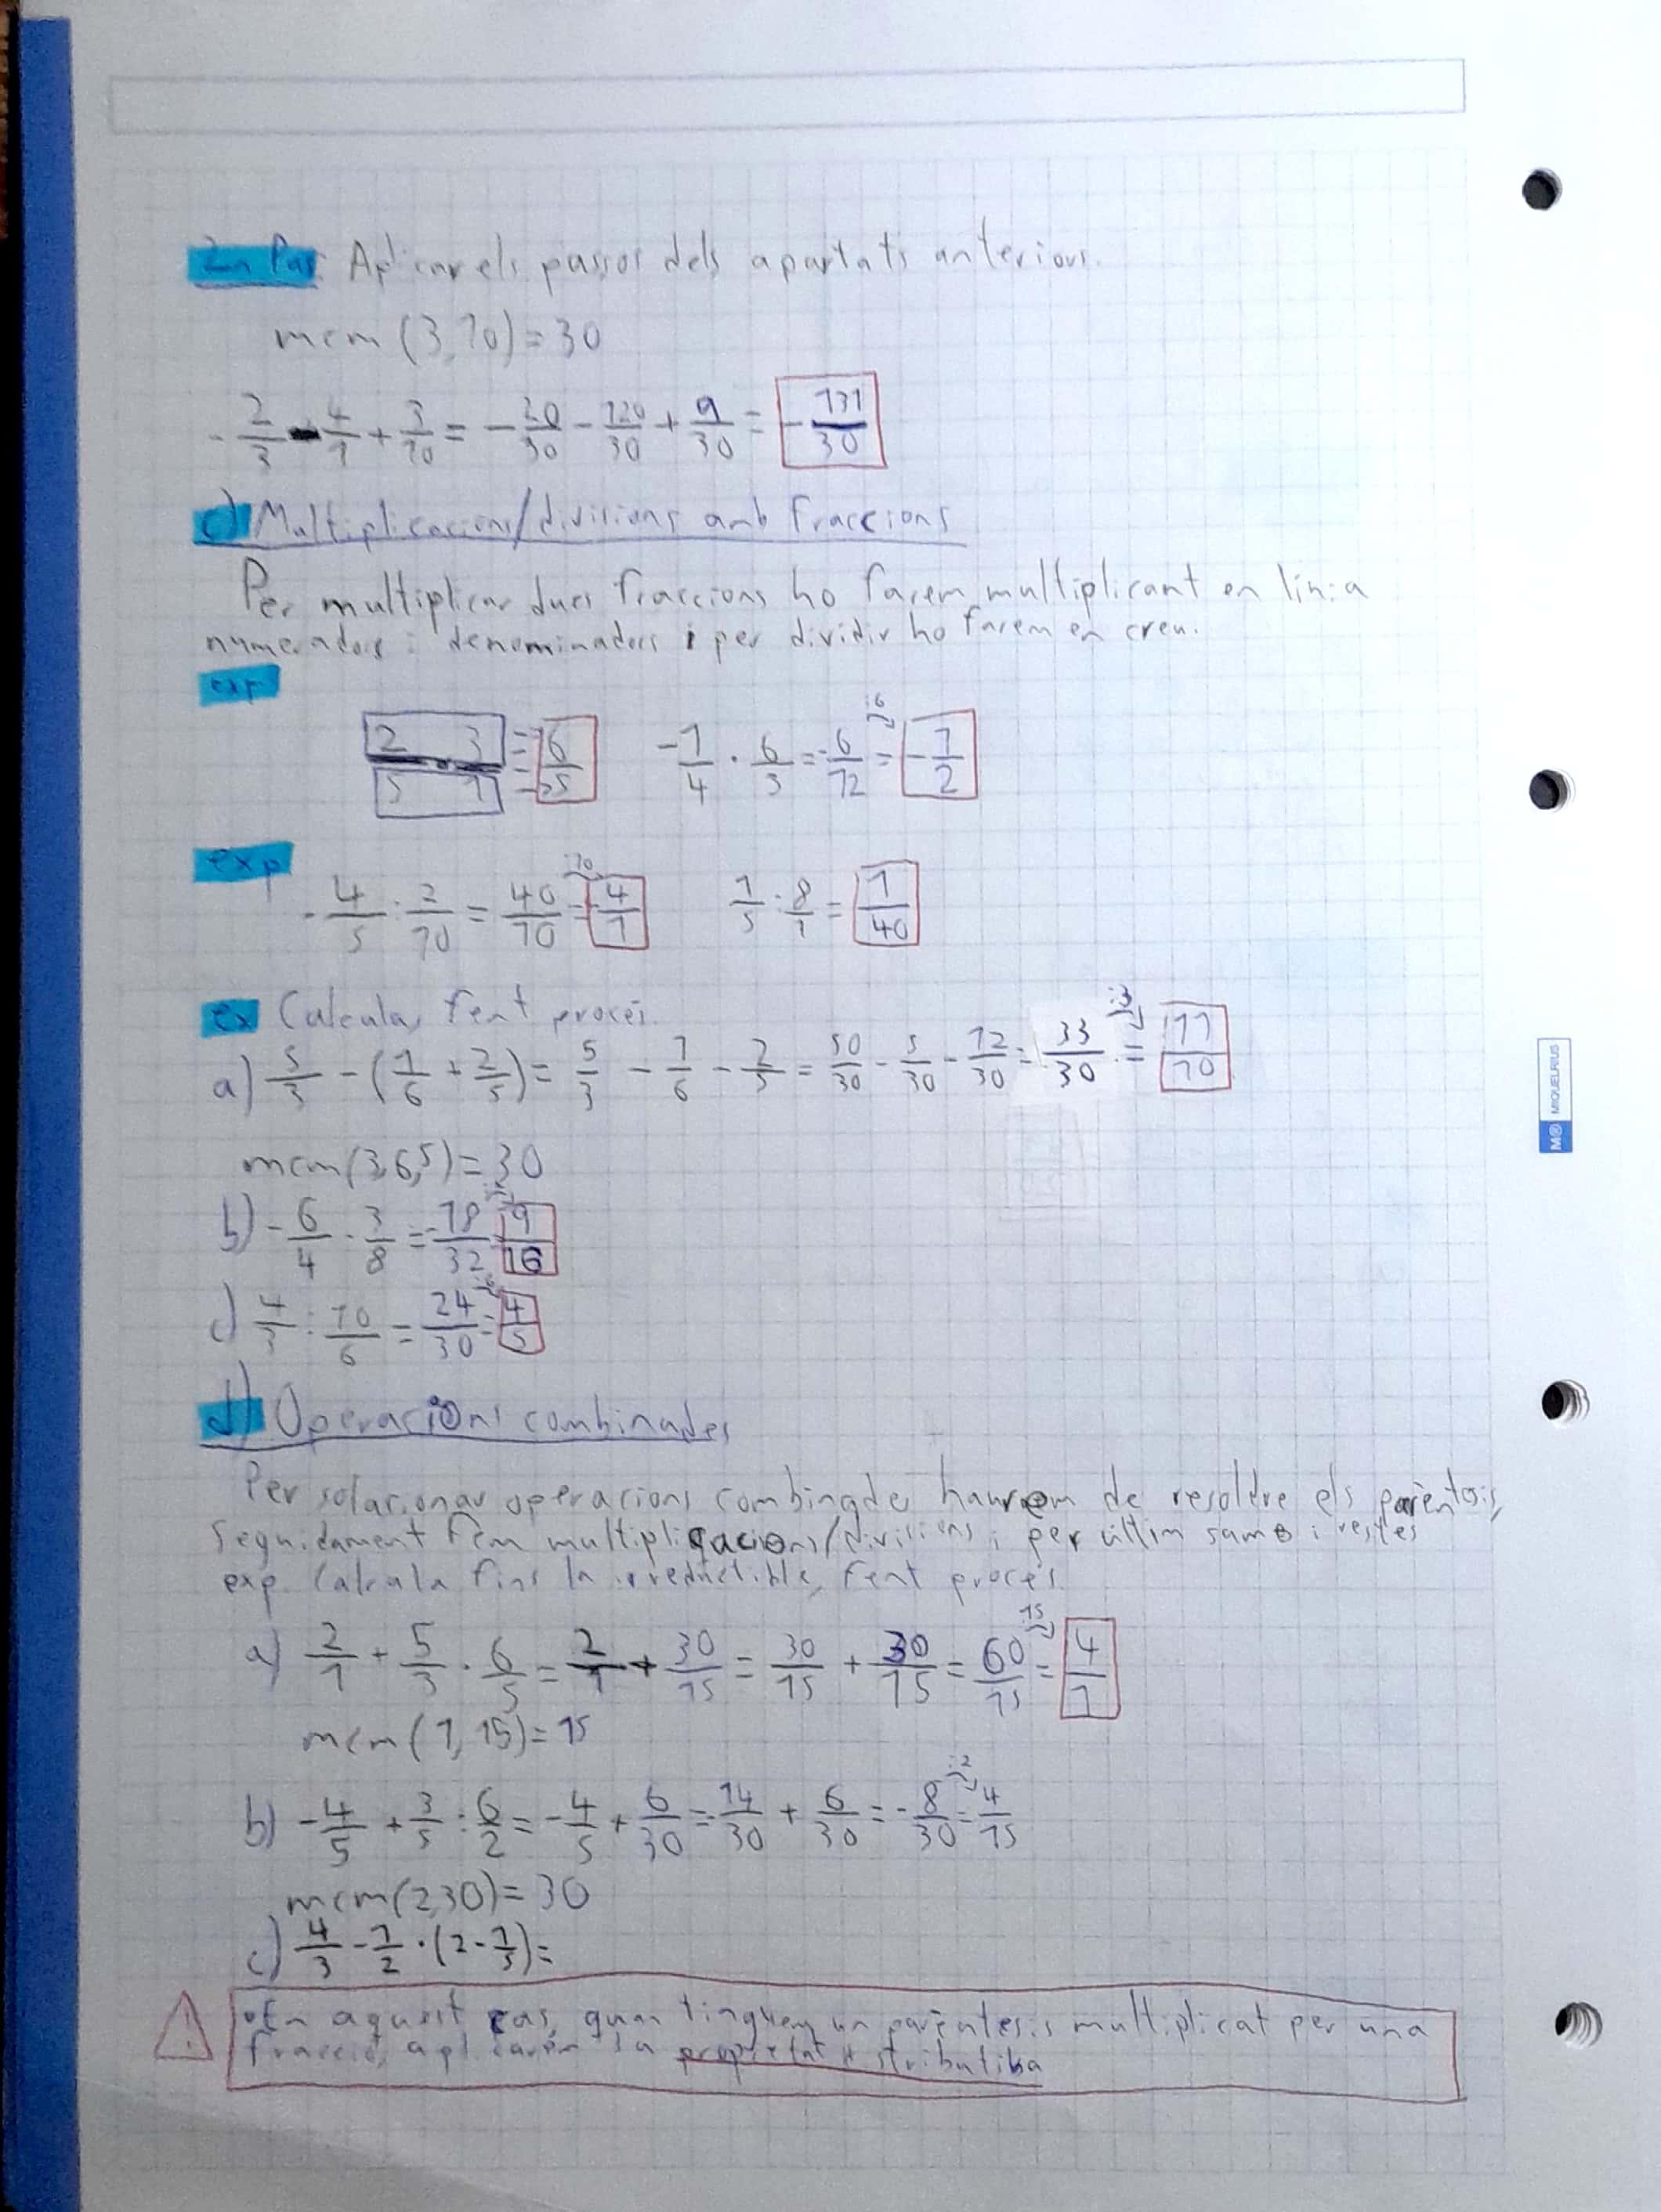 2n Pas: Aplicar els passos dels apartats anteriors.
mcm (3,10) = 30
- 2/3 - 4/1 + 3/10 = - 20/30 - 120/30 + 9/30 = - 131/30
c) Multiplicacions/divisions amb fraccions
Per multiplicar dues fraccions ho farem multiplicant en línia
numeradors i denominadors i per dividir ho farem en creu.
exp
2/5 · 3/1 = 6/5    - 1/4 · 6/3 = - 6/12 = (:6) - 1/2
exp
- 4/5 : 2/10 = 40/10 = (:10) 4/1    1/5 : 8/1 = 1/40
ex Calcula, fent procés.
a) 5/3 - (1/6 + 2/5) = 5/3 - 1/6 - 2/5 = 50/30 - 5/30 - 12/30 = 33/30 = (:3) 11/10
mcm(3,6,5) = 30
b) - 6/4 · 3/8 = - 18/32 = 9/16
c) 4/3 : 10/6 = 24/30 = (:6) 4/5
d) Operacions combinades
Per solucionar operacions combinades haurem de resoldre els parèntesis,
seguidament fem multiplicacions/divisions i per últim sumes i restes
exp Calcula fins la irreductible, fent procés.
a) 2/1 + 5/3 · 6/5 = 2/1 + 30/15 = 30/15 + 30/15 = 60/15 = (:15) 4/1
mcm (1, 15) = 15
b) - 4/5 + 3/5 : 6/2 = - 4/5 + 6/30 = - 14/30 + 6/30 = - 8/30 = (:2) 4/15
mcm(2,30) = 30
c) 4/3 - 1/2 · (2 - 1/5) =
! • En aquest cas, quan tinguem un parèntesis multiplicat per una
fracció, aplicarem la propietat distributiba
M® MIQUELRIUS